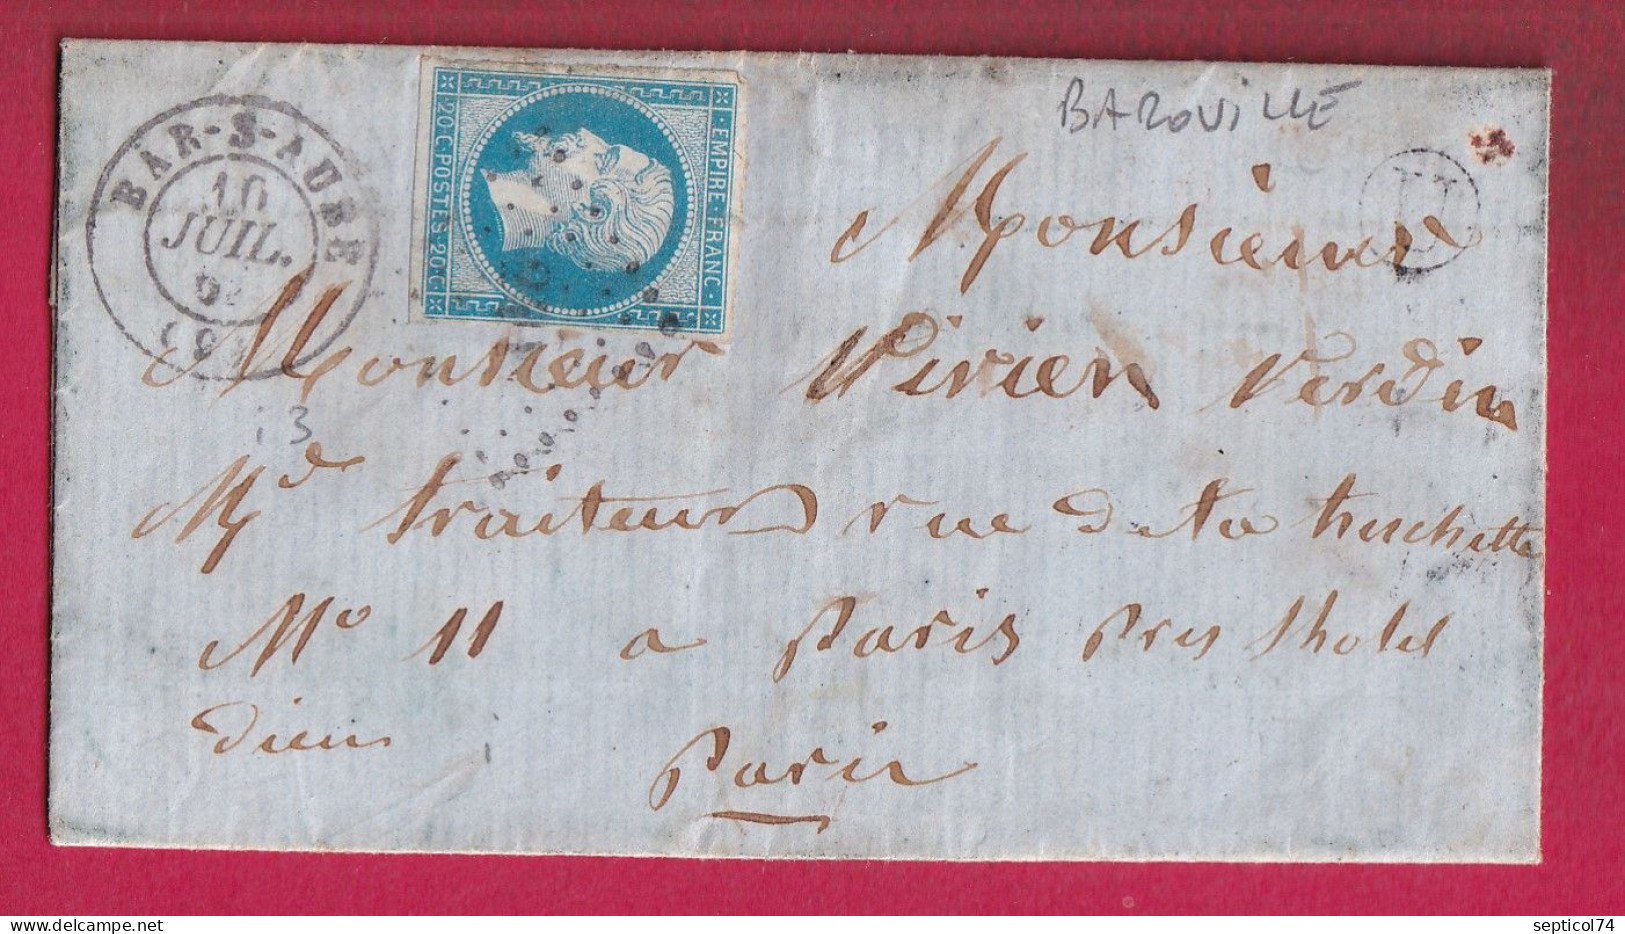 BAROVILLE
BAR-S-AUBE
10
JUIL.
(9)
EMPIRE·FRANC·
20·C·POSTES 20·C·
U
Monsieur
Monsieur Vivien Verdin
Md traiteur rue de la huchette
No 11 a Paris Pres lhotel
dieu
Paris
i3
septicol74